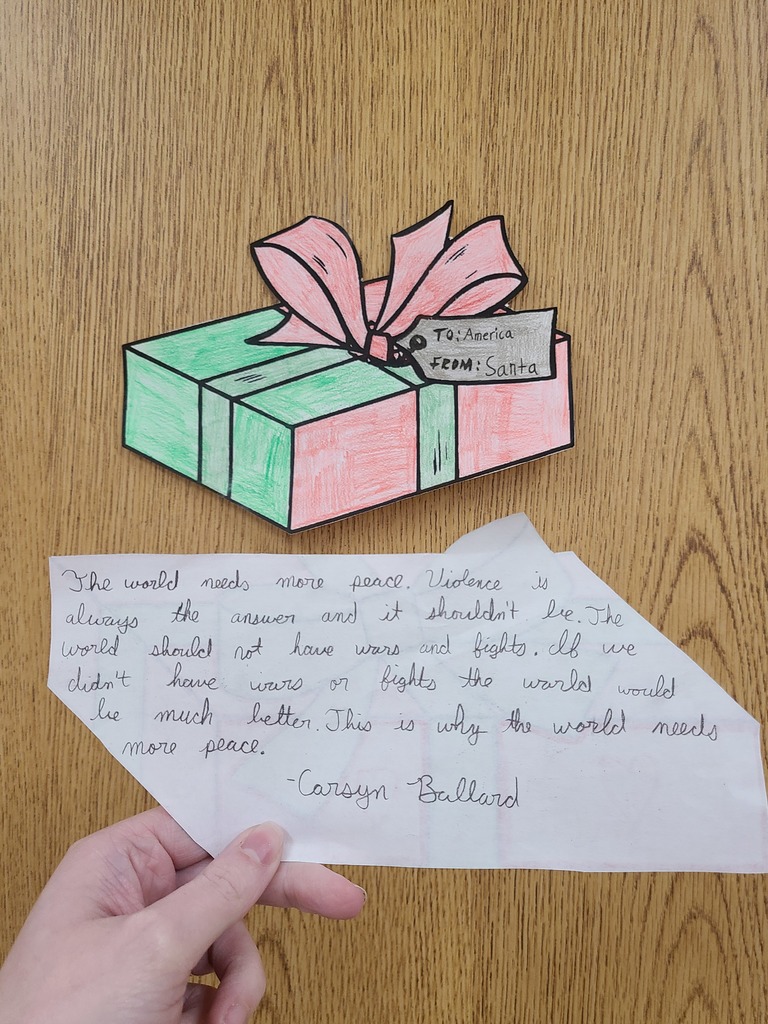 TO: America
FROM: Santa
The world needs more peace. Violence is
always the answer and it shouldn't be. The
world should not have wars and fights. If we
didn't have wars or fights the world would
be much better. This is why the world needs
more peace.
-Carsyn Ballard